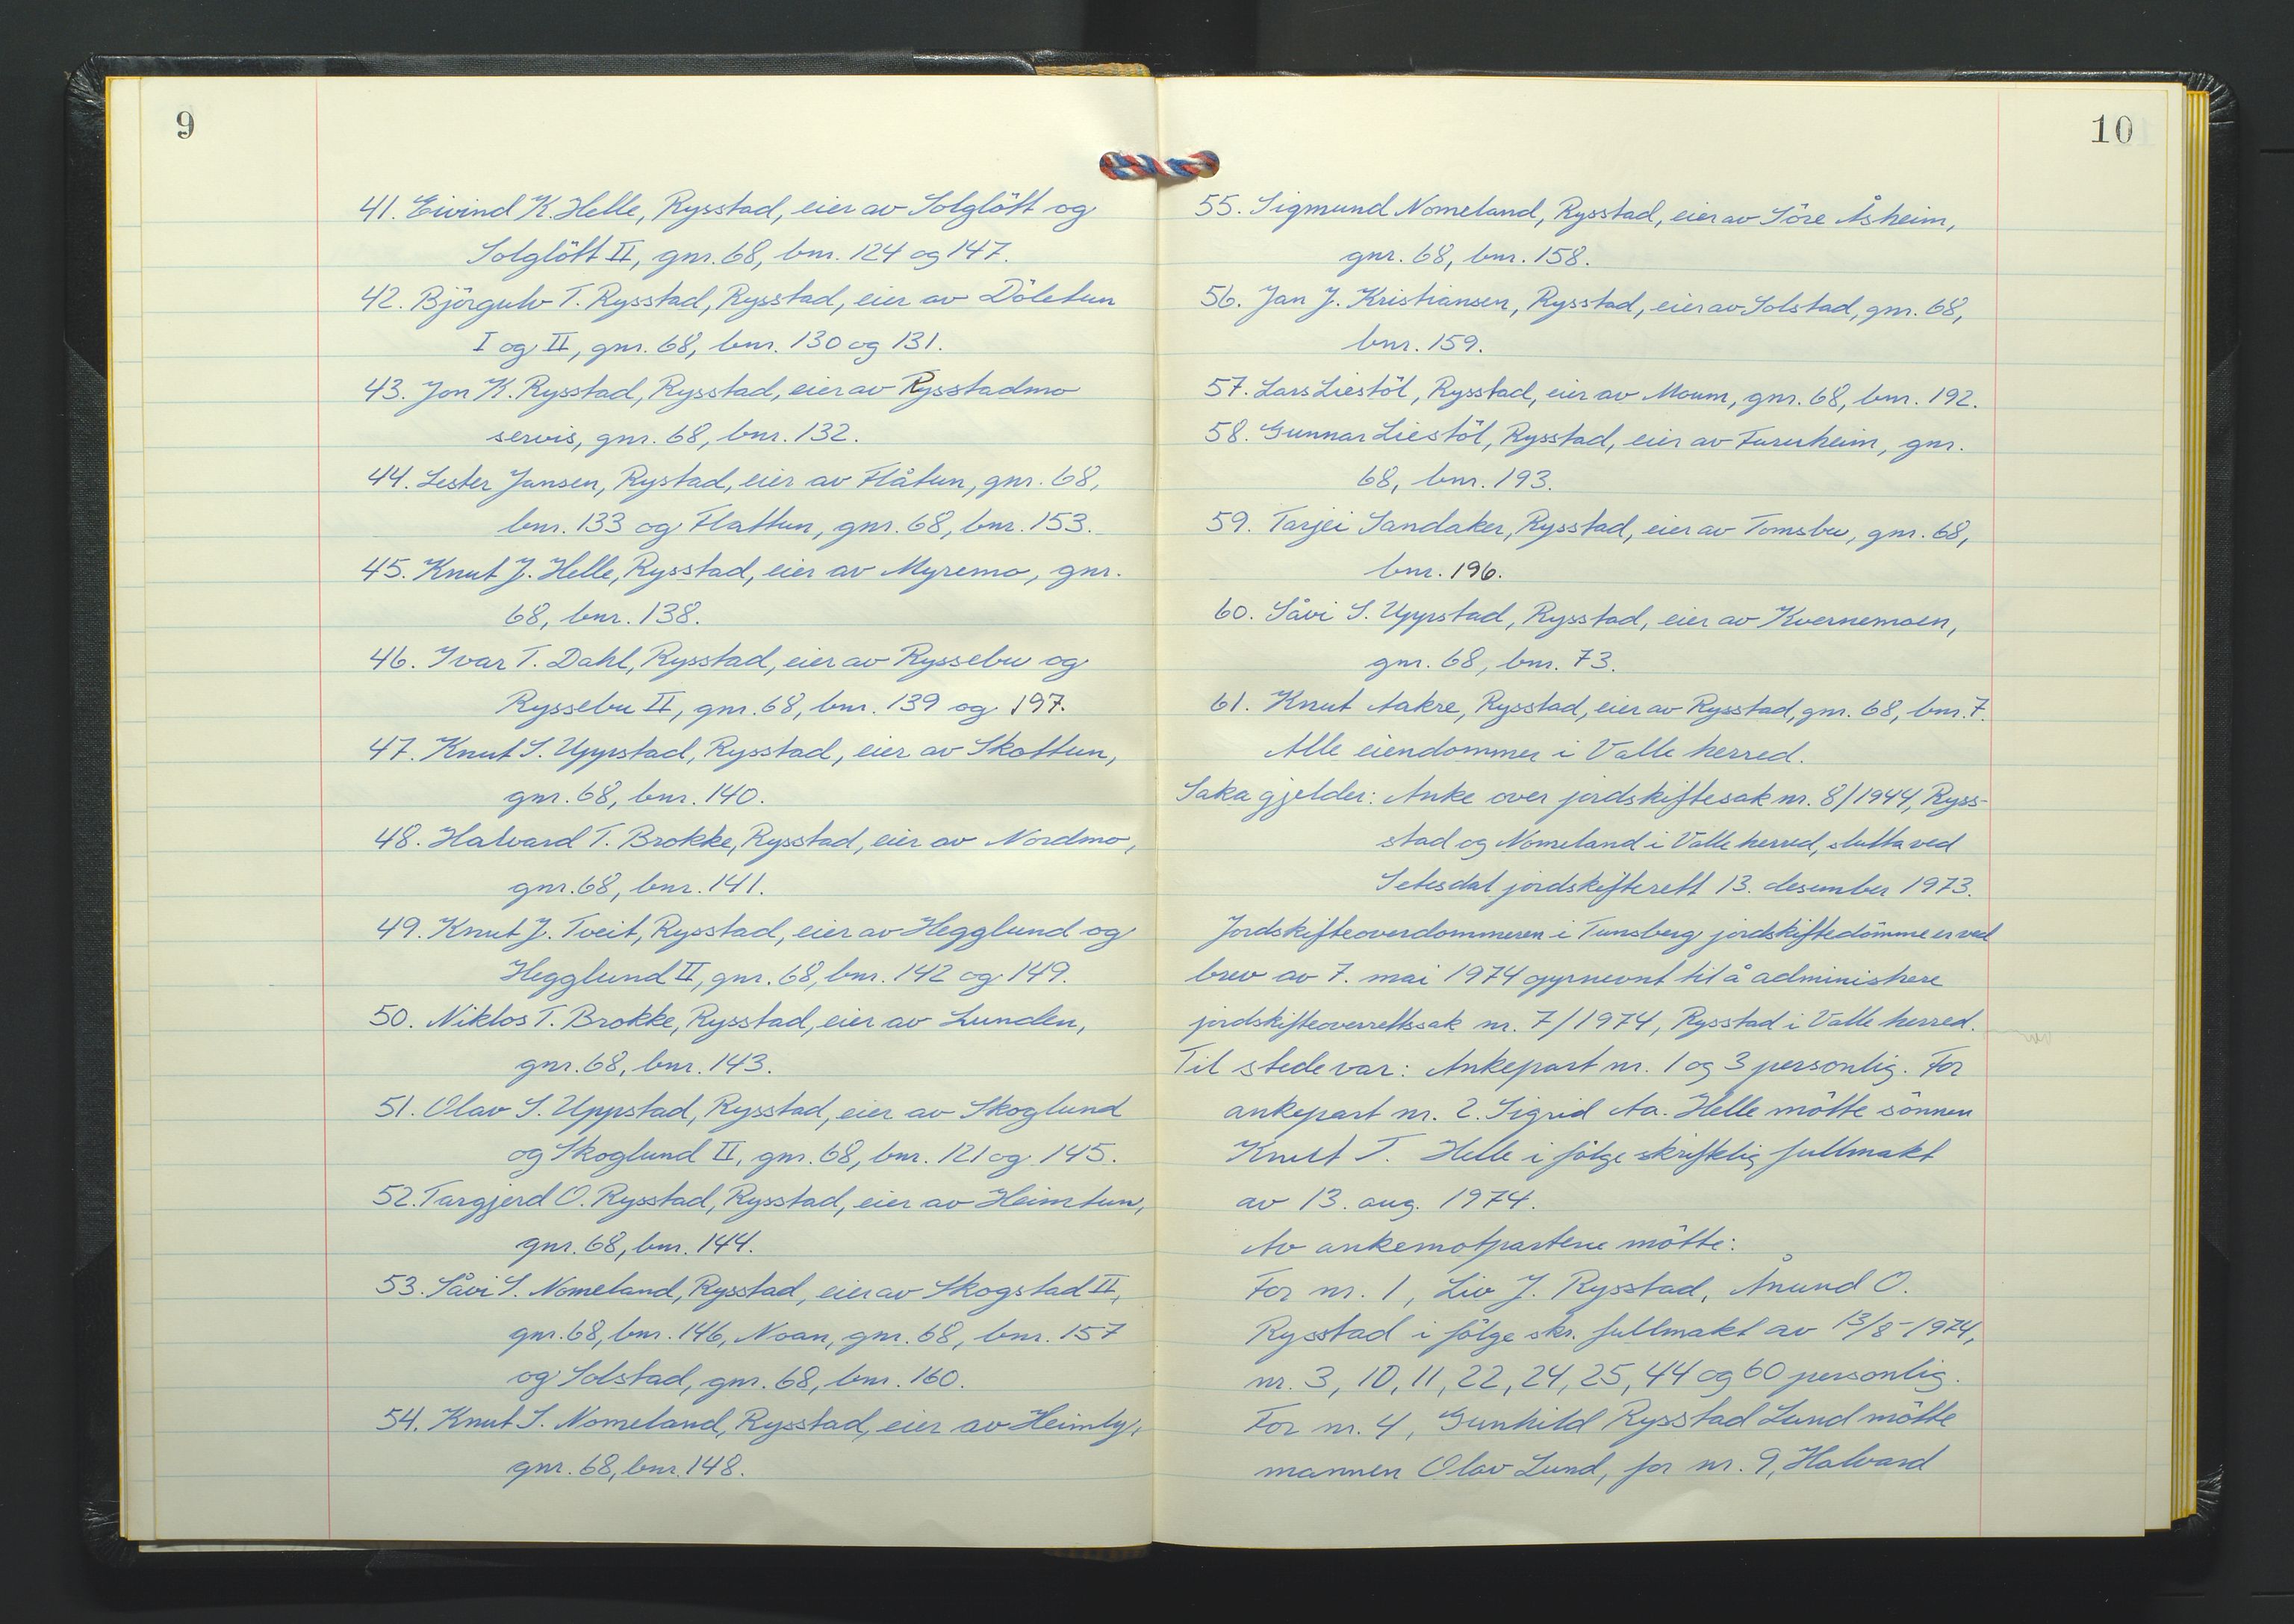 9
41. Eivind K. Helle, Rysstad, eier av Solglött og
Solglött II, gnr. 68, bnr. 124 og 147.
42. Björgulv T. Rysstad, Rysstad, eier av Döletun
I og II, gnr. 68, bnr. 130 og 131.
43. Jon K. Rysstad, Rysstad, eier av Rysstadmo
servis, gnr. 68, bnr. 132.
44. Lester Jansen, Rystad, eier av Flåtun, gnr. 68,
bnr. 133 og Flattun, gnr. 68, bnr. 153.
45. Knut J. Helle, Rysstad, eier av Myremo, gnr.
68, bnr. 138.
46. Ivar T. Dahl, Rysstad, eier av Ryssebu og
Ryssebu II, gnr. 68, bnr. 139 og 197.
47. Knut S. Uppstad, Rysstad, eier av Skottun,
gnr. 68, bnr. 140.
48. Halvard T. Brokke, Rysstad, eier av Nordmo,
gnr. 68, bnr. 141.
49. Knut J. Tveit, Rysstad, eier av Hegglund og
Hegglund II, gnr. 68, bnr. 142 og 149.
50. Niklos T. Brokke, Rysstad, eier av Lunden,
gnr. 68, bnr. 143.
51. Olav S. Uppstad, Rysstad, eier av Skoglund
og Skoglund II, gnr. 68, bnr. 121 og 145.
52. Targjerd O. Rysstad, Rysstad, eier av Heimtun,
gnr. 68, bnr. 144.
53. Såvi S. Nomeland, Rysstad, eier av Skogstad II,
gnr. 68, bnr. 146, Noan, gnr. 68, bnr. 157
og Solstad, gnr. 68, bnr. 160.
54. Knut S. Nomeland, Rysstad, eier av Heimly,
gnr. 68, bnr. 148.
10
55. Sigmund Nomeland, Rysstad, eier av Söre Åsheim,
gnr. 68, bnr. 158.
56. Jan J. Kristiansen, Rysstad, eier av Solstad, gnr. 68,
bnr. 159.
57. Lars Liestöl, Rysstad, eier av Moum, gnr. 68, bnr. 192.
58. Gunnar Liestöl, Rysstad, eier av Furuheim, gnr.
68, bnr. 193.
59. Tarjei Sandaker, Rysstad, eier av Tomsbu, gnr. 68,
bnr. 196.
60. Såvi S. Uppstad, Rysstad, eier av Kvernemoen,
gnr. 68, bnr. 73.
61. Knut Aakre, Rysstad, eier av Rysstad, gnr. 68, bnr. 7.
Alle eiendommer i Valle herred.
Saka gjelder: Anke over jordskiftesak nr. 8/1944, Ryss-
stad og Nomeland i Valle herred, slutta ved
Setesdal jordskifterett 13. desember 1973.
Jordskifteoverdommeren i Tunsberg jordskiftedömme er ved
brev av 7. mai 1974 oppnevnt til å administrere
jordskifteoverrettssak nr. 7/1974, Rysstad i Valle herred.
Til stede var: Ankepart nr. 1 og 3 personlig. For
ankepart nr. 2. Sigrid Aa. Helle mötte sönnen
Knut T. Helle i fölge skriftelig fullmakt
av 13. aug. 1974.
Av ankemotpartene mötte:
For nr. 1, Liv J. Rysstad, Ånund O.
Rysstad i fölge skr. fullmakt av 13/8-1974,
nr. 3, 10, 11, 22, 24, 25, 44 og 60 personlig.
For nr. 4, Gunhild Rysstad Lund mötte
mannen Olav Lund, for nr. 9, Halvard